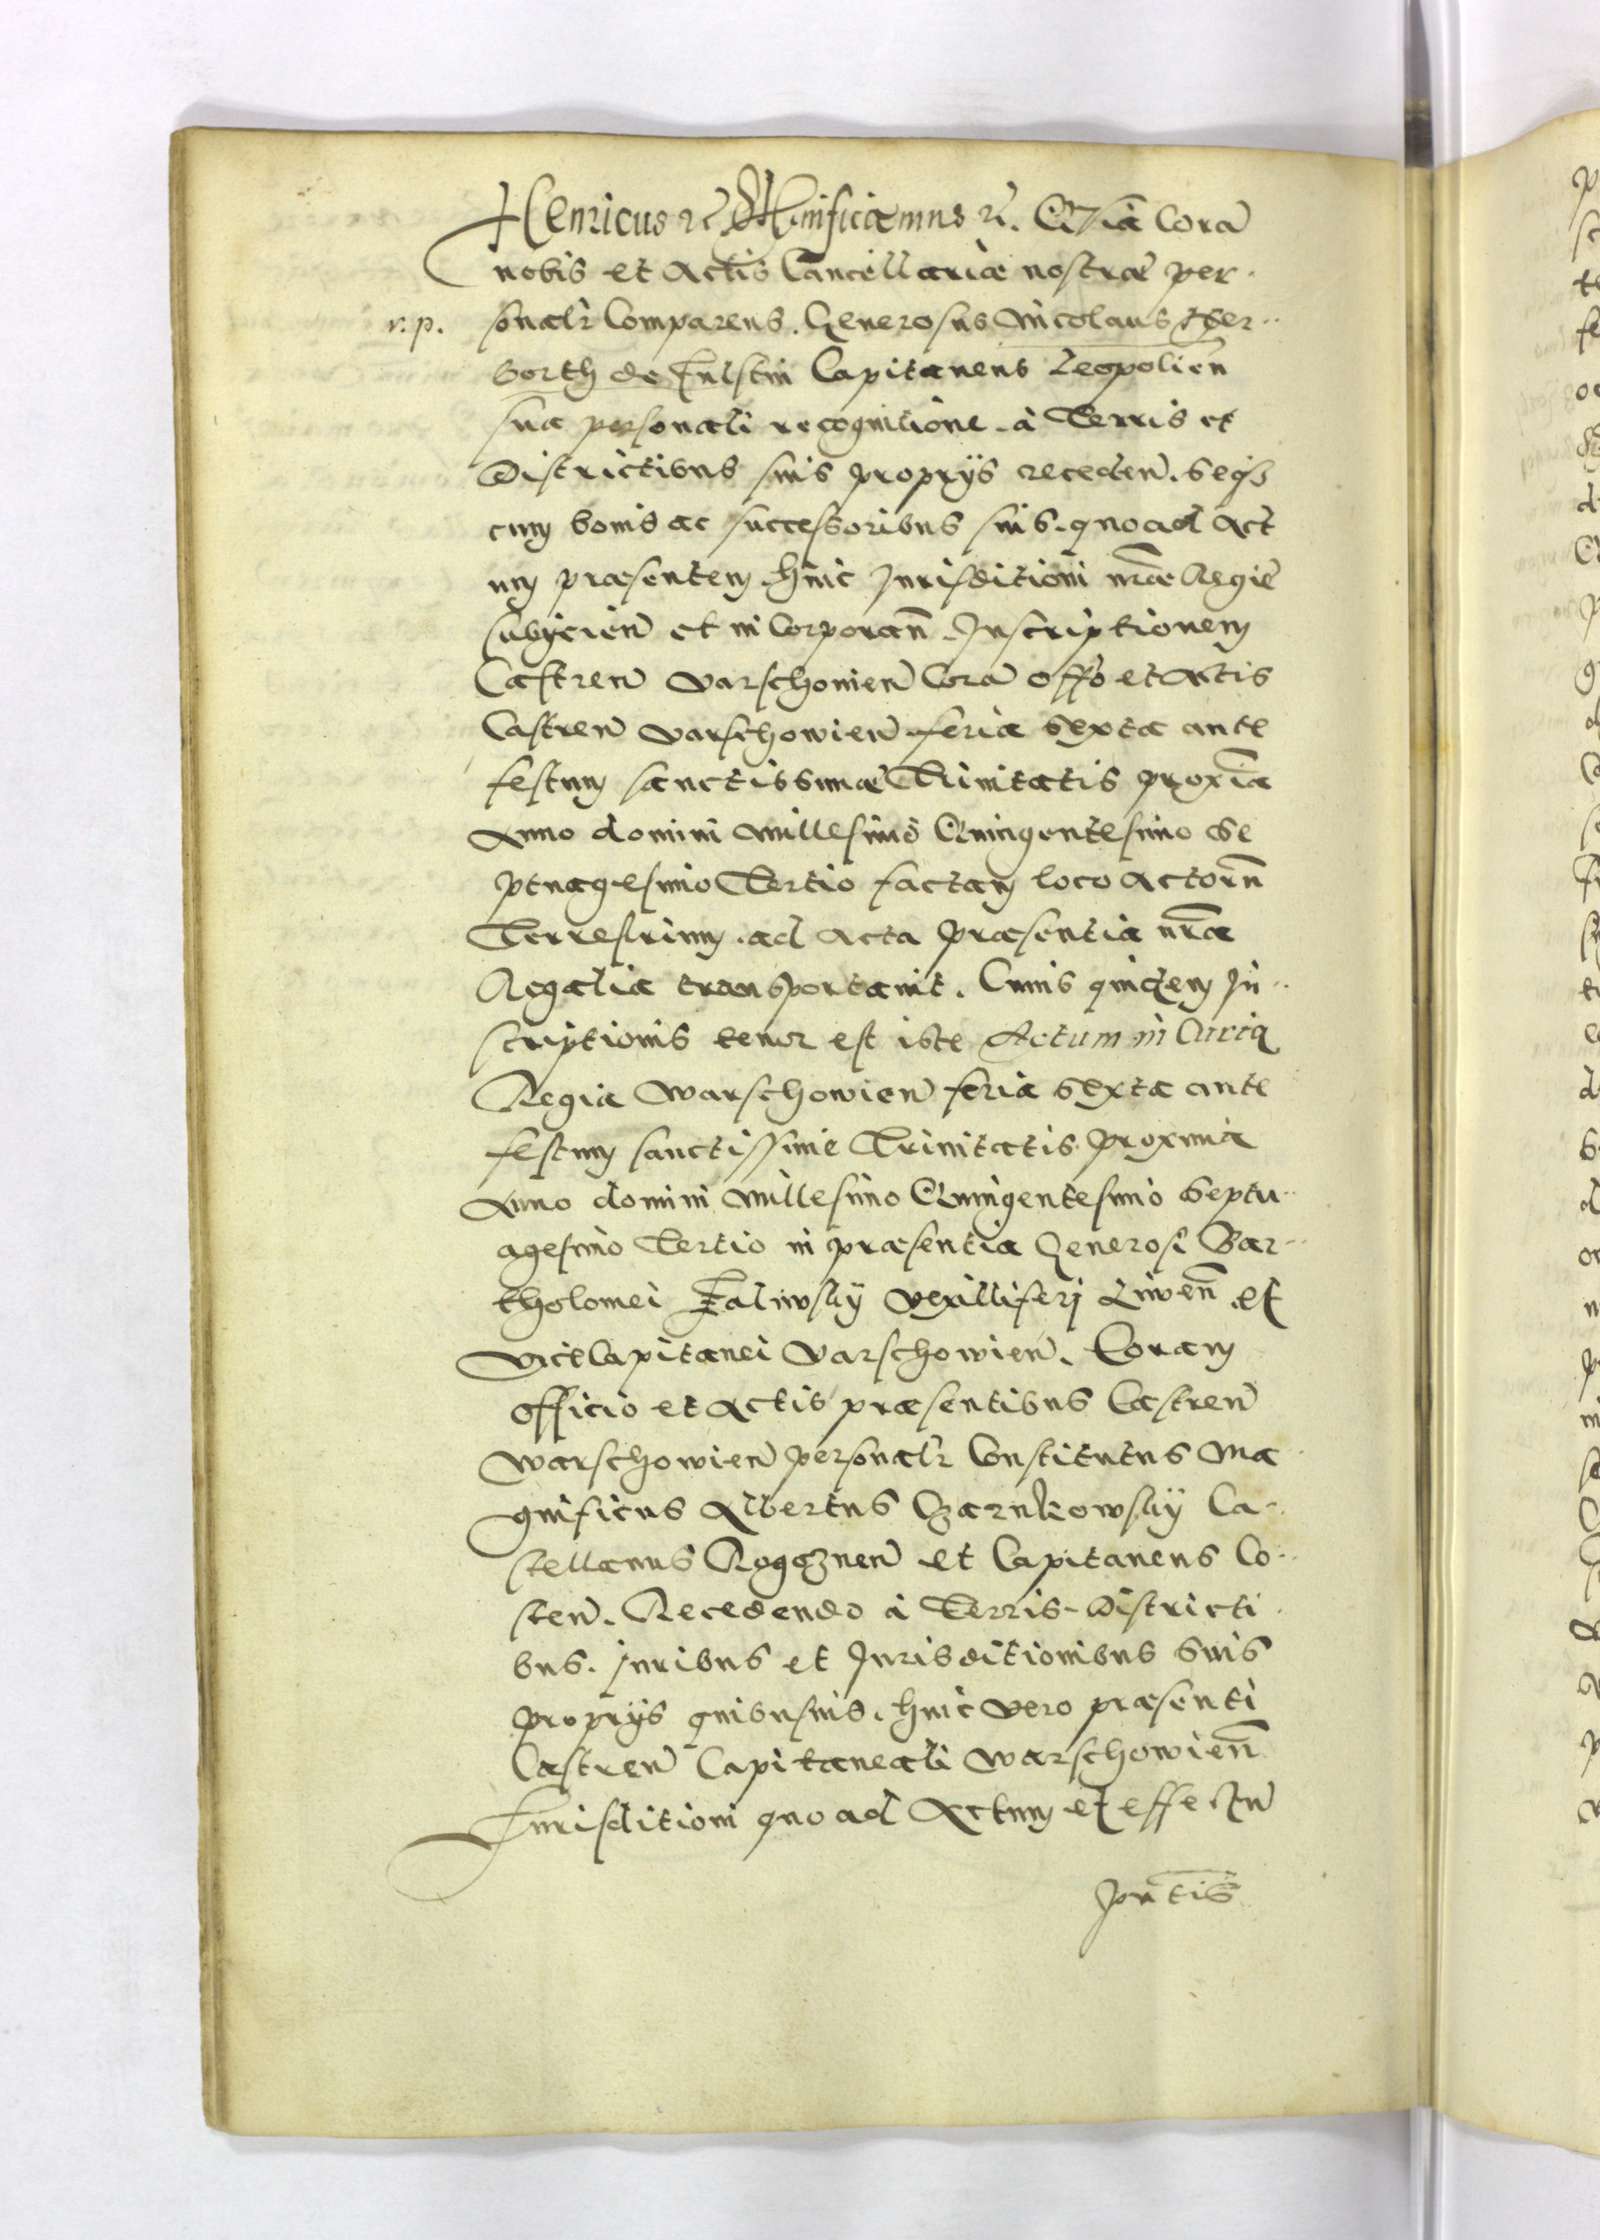 Henricus etc. Significamus etc. Quia Corã
nobis et Actis Cancellariæ nostræ per-
r. p. sonalr Comparens. Generosus Nicolaus Her-
borth de Fulstin Capitaneus Leopolien̄
sua personali recognitione. à Terris et
Districtibus suis proprijs receden̄. seqȝ
cum bonis ac successoribus suis. quoad Act
um præsentem. huic Jurisditioni nr̄æ Regiæ
subijcien̄ et incorporan̄. Inscriptionem
Castren̄ Varschouien̄ Corã offo et Actis
Castren̄ Varschowien̄ feria sexta ante
festum sanctissimæ Trinitatis proximã
Anno domini Millesimo Quingentesimo Se
ptuagesimo Tertio factam loco Actorũ
Terrestrium. ad Acta præsentia nr̄a
Regalia transportauit. Cuius quidem In-
scriptionis tenor est iste Actum in Curia
Regia Warschowien̄ feria sexta ante
festum sanctissime Trinitatis proxima
Anno domini Millesimo Quingentesimo Septu-
agesimo Tertio in præsentia Generosi Bar-
tholomei Zaliwskÿ Vexilliferj Liwen̄. et
ViceCapitanei Varschowien̄. Coram
officio et Actis præsentibus Castren̄
Warschowien̄ personalr Constitutus Ma-
gnificus Albertus Czarnkowskÿ Ca-
stellanus Rogoznen̄ et Capitaneus Co-
sten̄. Recedendo à Terris. Districti-
bus. Juribus et Jurisditionibus suis
proprijs quibusuis. huic vero præsenti
Castren̄ Capitaneali Warschowien̄
Jurisditioni quoad Actum et effectũ
pn̄tis